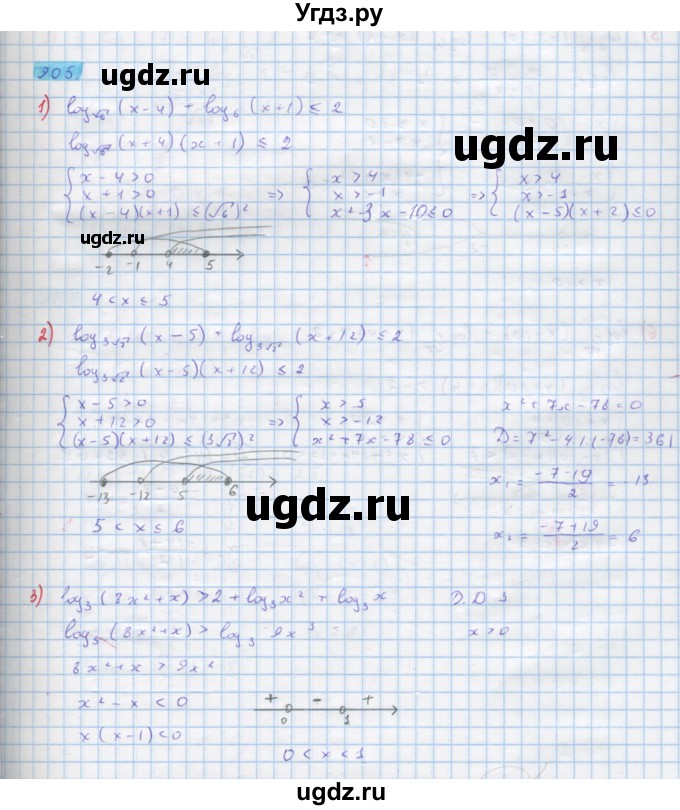 Угдз.ру
905.
ugdz.ru
1) log√6 (x-4) + log6 (x+1) ≤ 2
log√6 (x+4)(x+1) ≤ 2
ugdz.ru
{ x-4>0 => { x>4 => { x>4
x+1>0 x>-1 x>-1
(x-4)(x+1) ≤ (√6)² x²-3x-10≤0 (x-5)(x+2)≤0
ugdz.ru
-2 -1 4 5
4 < x ≤ 5
2) log3√2 (x-5) + log3√2 (x+12) ≤ 2
log3√2 (x-5)(x+12) ≤ 2
{ x-5>0 => { x>5 x²+7x-78=0
x+12>0 x>-12
(x-5)(x+12) ≤ (3√2)² x²+7x-78≤0 D=7²-4·1·(-78)=361
-13 -12 5 6
x₁ = (-7-19)/2 = 13
ugdz.ru
5 < x ≤ 6
x₂ = (-7+19)/2 = 6
3) log3 (8x²+x) > 2 + log3 x² + log3 x О.Д.З
log3 (8x²+x) > log3 9x³ x>0
8x²+x > 9x²
x²-x < 0
+ - +
0 1
x(x-1)<0
0 < x < 1
ugdz.ru